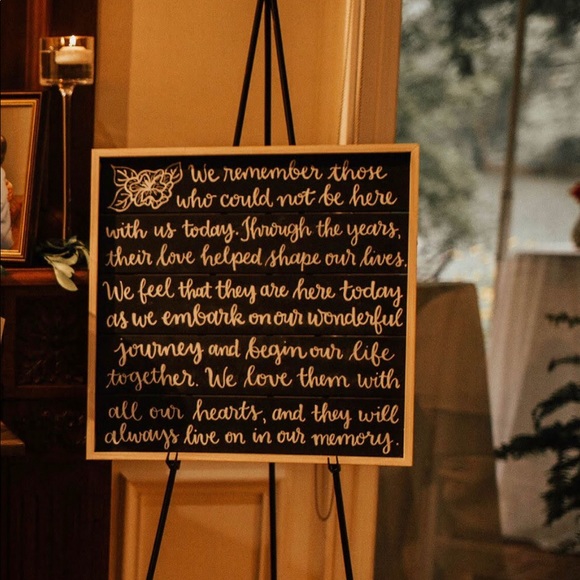 We remember those
who could not be here
with us today. Through the years,
their love helped shape our lives.
We feel that they are here today
as we embark on our wonderful
journey and begin our life
together. We love them with
all our hearts, and they will
always live on in our memory.